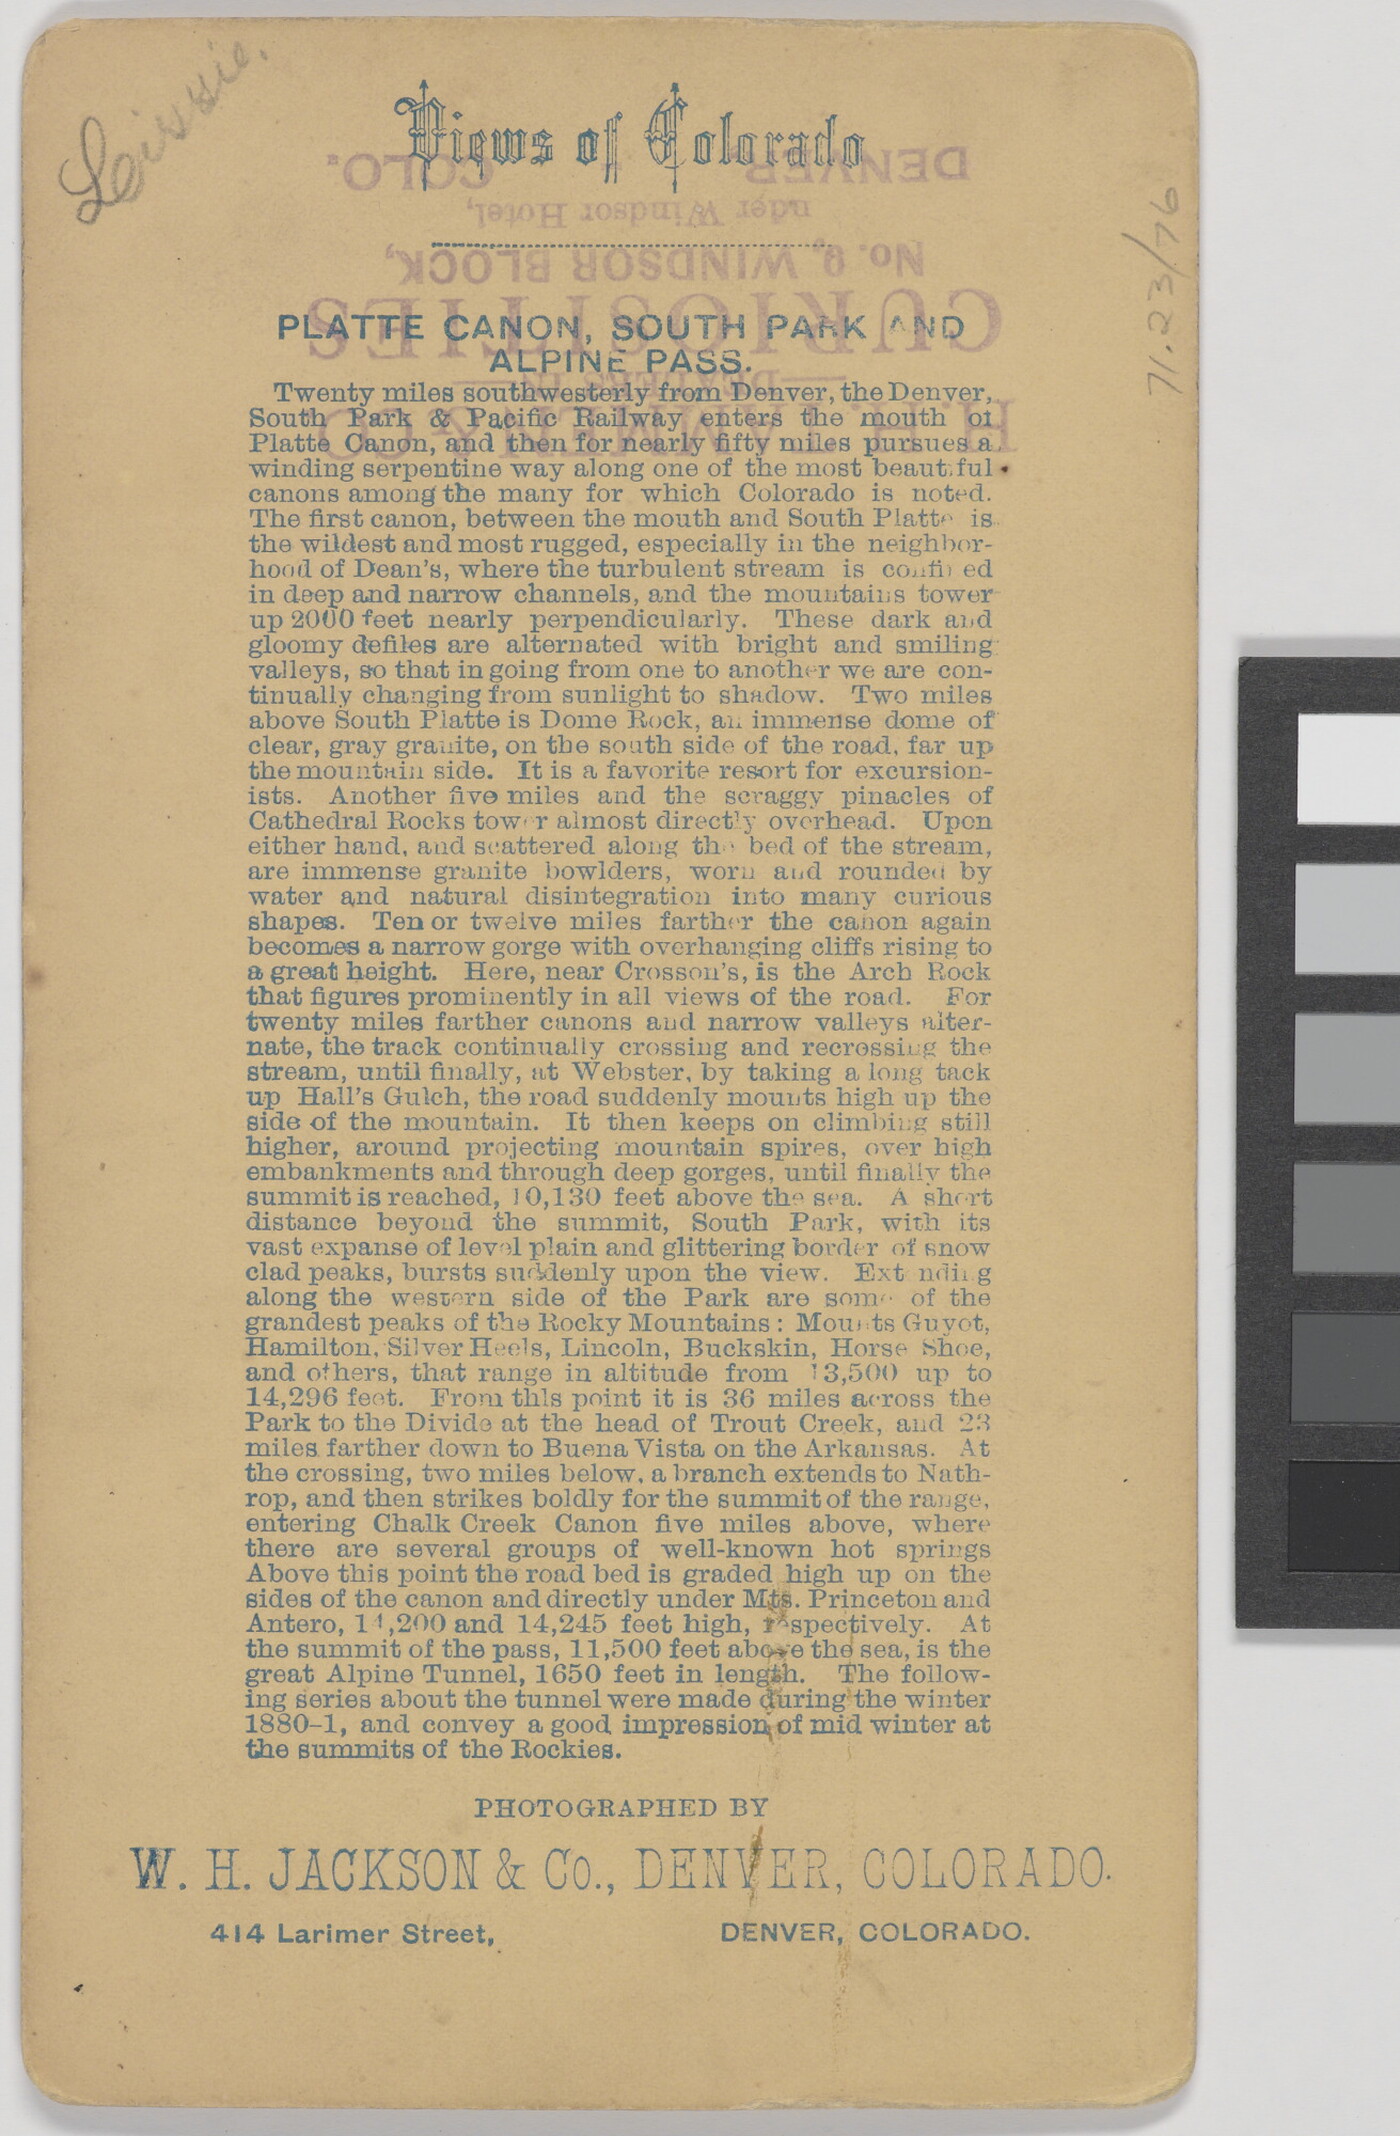 Views of Colorado
PLATTE CANON, SOUTH PARK AND
ALPINE PASS.
Twenty miles southwesterly from Denver, the Denver,
South Park & Pacific Railway enters the mouth of
Platte Canon, and then for nearly fifty miles pursues a
winding serpentine way along one of the most beautiful
canons among the many for which Colorado is noted.
The first canon, between the mouth and South Platte is
the wildest and most rugged, especially in the neighbor-
hood of Dean's, where the turbulent stream is confined
in deep and narrow channels, and the mountains tower
up 2000 feet nearly perpendicularly. These dark and
gloomy defiles are alternated with bright and smiling
valleys, so that in going from one to another we are con-
tinually changing from sunlight to shadow. Two miles
above South Platte is Dome Rock, an immense dome of
clear, gray granite, on the south side of the road, far up
the mountain side. It is a favorite resort for excursion-
ists. Another five miles and the scraggy pinacles of
Cathedral Rocks tower almost directly overhead. Upon
either hand, and scattered along the bed of the stream,
are immense granite bowlders, worn and rounded by
water and natural disintegration into many curious
shapes. Ten or twelve miles farther the canon again
becomes a narrow gorge with overhanging cliffs rising to
a great height. Here, near Crosson's, is the Arch Rock
that figures prominently in all views of the road. For
twenty miles farther canons and narrow valleys alter-
nate, the track continually crossing and recrossing the
stream, until finally, at Webster, by taking a long tack
up Hall's Gulch, the road suddenly mounts high up the
side of the mountain. It then keeps on climbing still
higher, around projecting mountain spires, over high
embankments and through deep gorges, until finally the
summit is reached, 10,130 feet above the sea. A short
distance beyond the summit, South Park, with its
vast expanse of level plain and glittering border of snow
clad peaks, bursts suddenly upon the view. Extending
along the western side of the Park are some of the
grandest peaks of the Rocky Mountains: Mounts Guyot,
Hamilton, Silver Heels, Lincoln, Buckskin, Horse Shoe,
and others, that range in altitude from 13,500 up to
14,296 feet. From this point it is 36 miles across the
Park to the Divide at the head of Trout Creek, and 23
miles farther down to Buena Vista on the Arkansas. At
the crossing, two miles below, a branch extends to Nath-
rop, and then strikes boldly for the summit of the range,
entering Chalk Creek Canon five miles above, where
there are several groups of well-known hot springs
Above this point the road bed is graded high up on the
sides of the canon and directly under Mts. Princeton and
Antero, 14,200 and 14,245 feet high, respectively. At
the summit of the pass, 11,500 feet above the sea, is the
great Alpine Tunnel, 1650 feet in length. The follow-
ing series about the tunnel were made during the winter
1880-1, and convey a good impression of mid winter at
the summits of the Rockies.
PHOTOGRAPHED BY
W. H. JACKSON & Co., DENVER, COLORADO.
414 Larimer Street, DENVER, COLORADO.
H. H. TAMMEN & CO
DEALERS IN
CURIOSITIES
No. 9, WINDSOR BLOCK,
nder Windsor Hotel,
DENVER COLO.
71.23/76